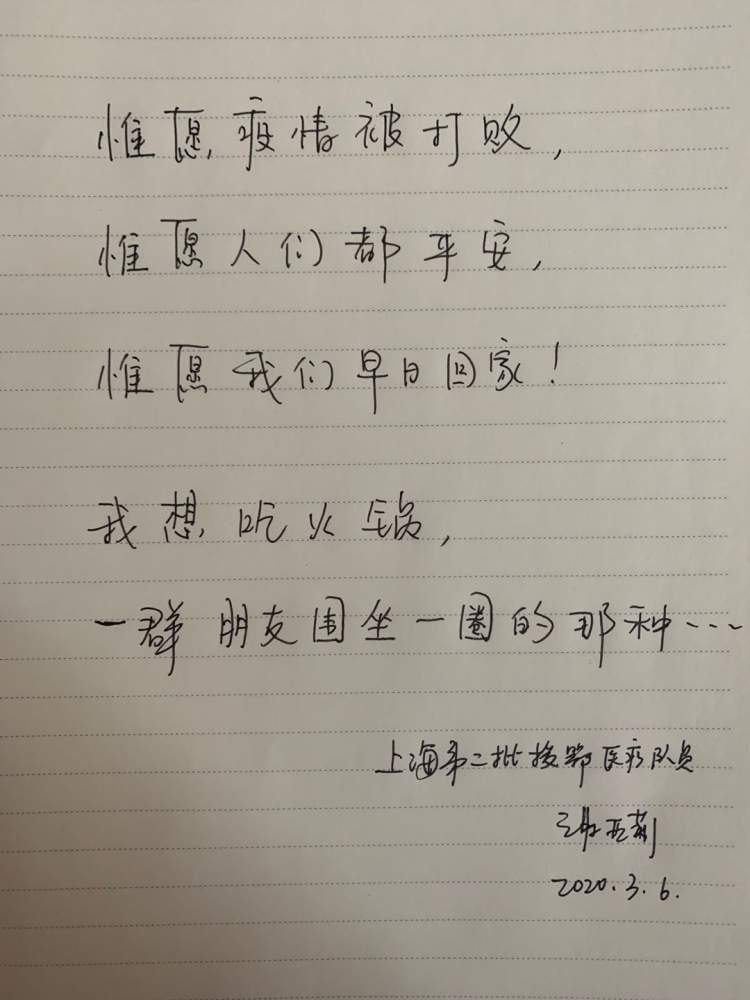 惟愿疫情被打败,
惟愿人们都平安,
惟愿我们早日回家!
我想吃火锅,
一群朋友围坐一圈的那种…
上海第二批援鄂医疗队员
亚莉
2020.3.6.